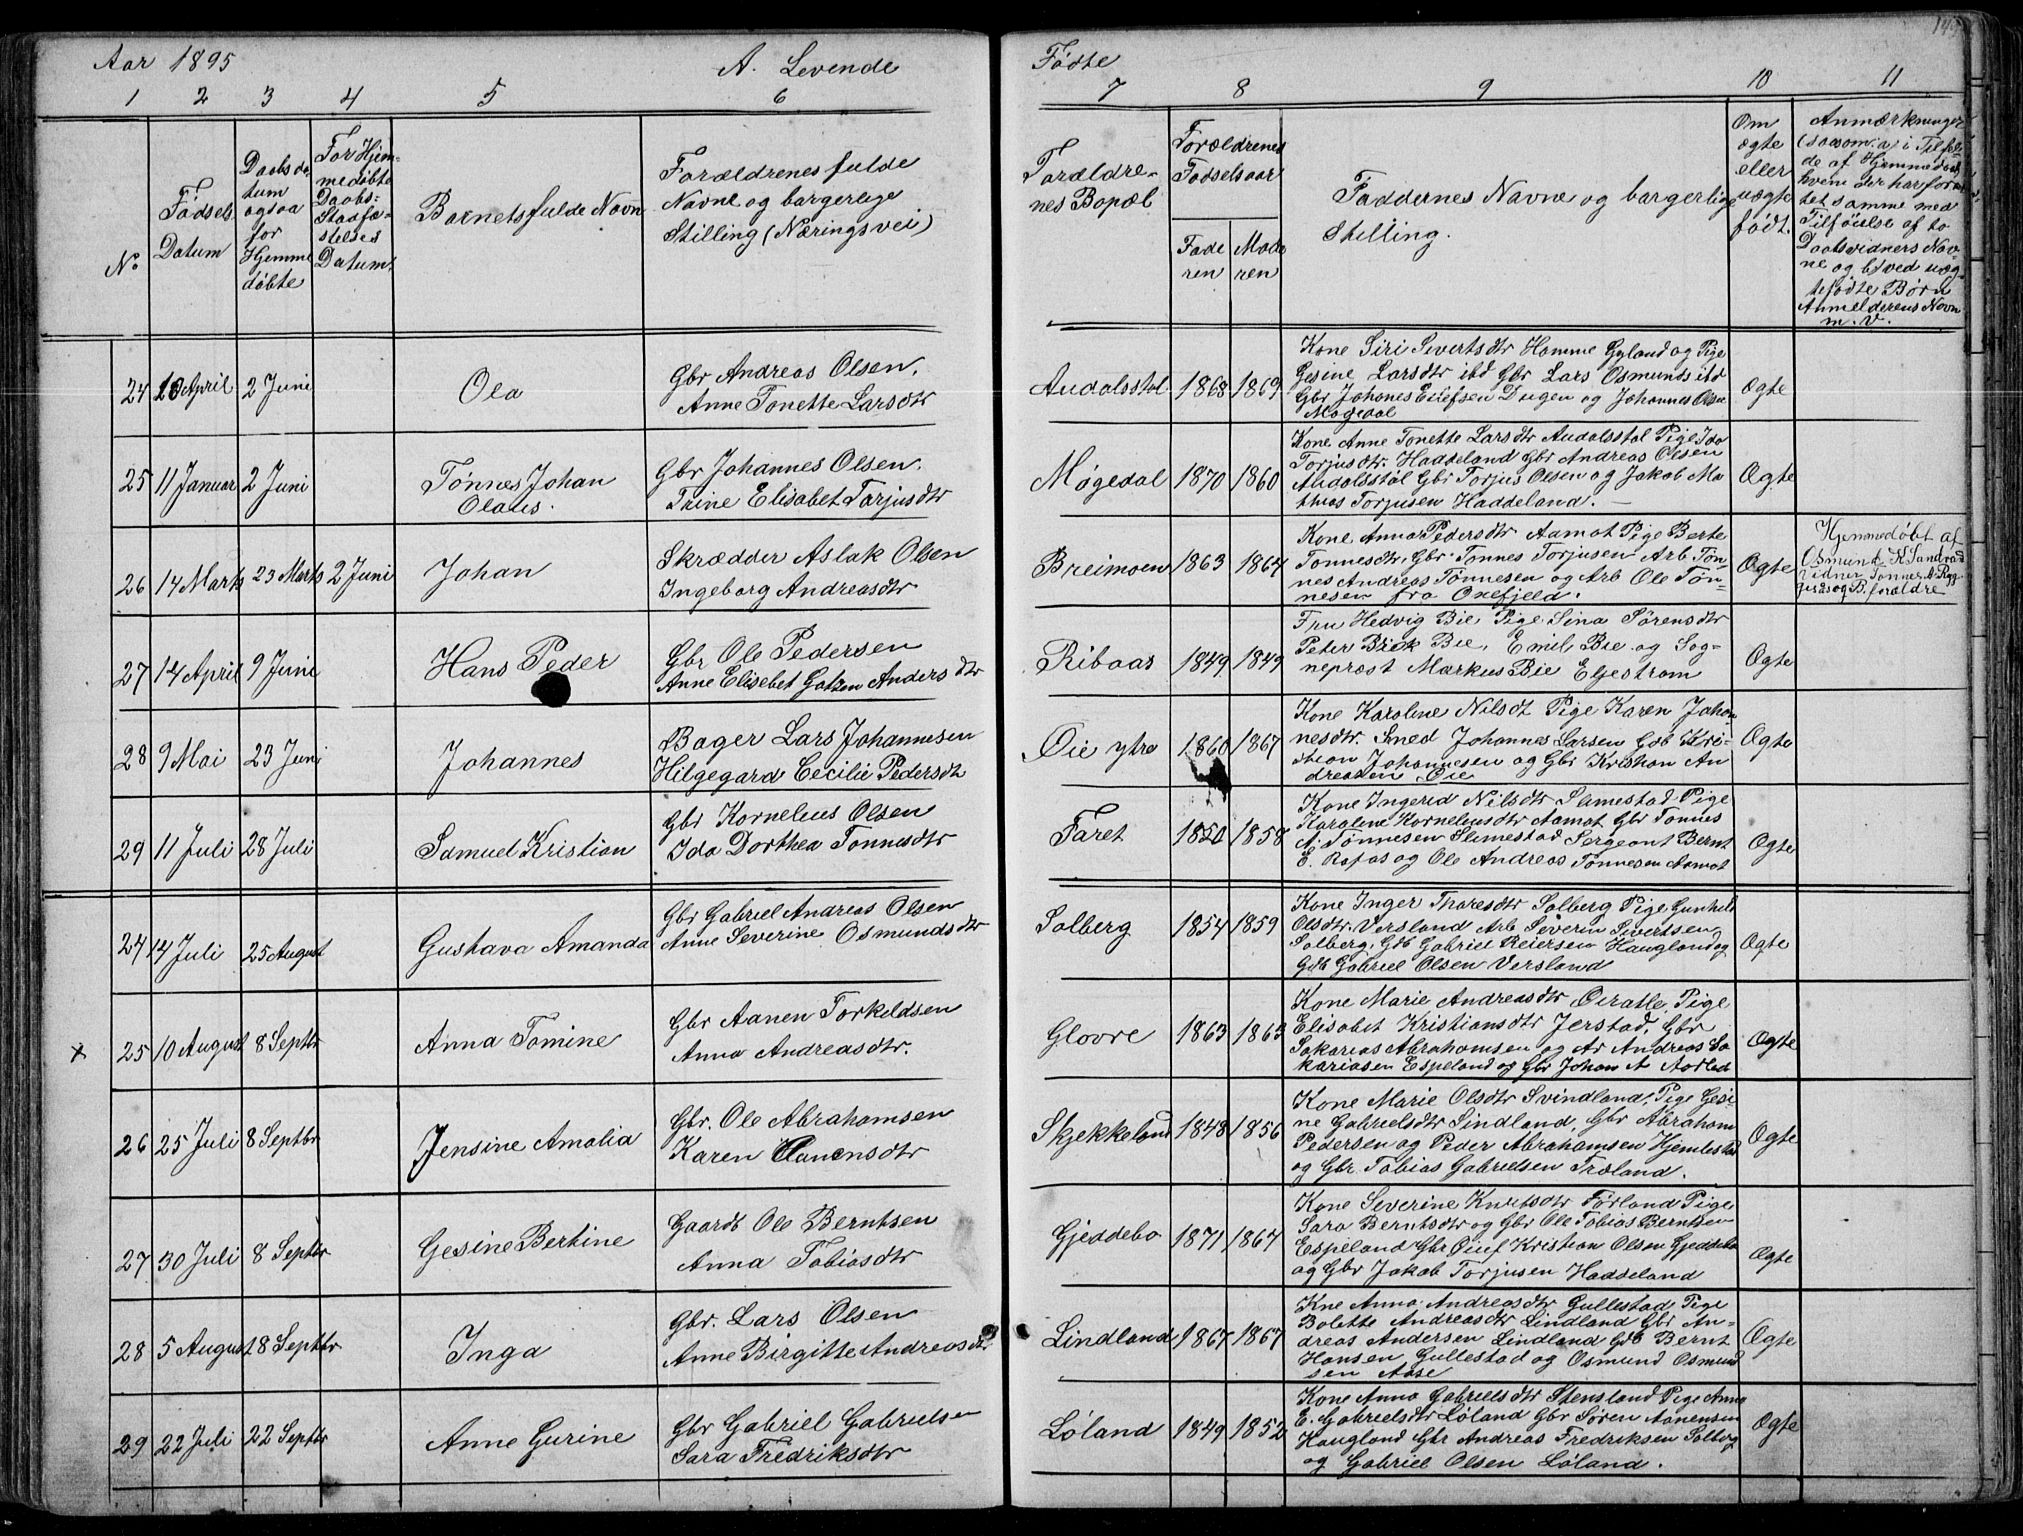 Aar 1895
A. Levende
Fødte
1 2 3 4 5 6 7 8 9 10 11
No
Fødsels
Datum
Daabsda
tum
ogsaa
for
Hjemme
døbte
For Hjem-
medøbte
Daabs-
Stadfæ-
stelses
Datum.
Barnets fulde Navn
Forældrenes fulde
Navne og borgerlige
Stilling (Næringsvei)
Forældre-
nes Bopæl
Forældrenes
Fødselsaar
Fade
ren
Mode
ren
Faddernes Navne og borgerlige
Stilling.
Om
ægte
eller
uægte
født.
Anmærkninger
(saasom: a) i Tilfæl
de af Hjemmedaab
hvem der har forret
tet samme med
Tilføielse af to
Daabsvidners Nav-
ne og b) ved uæg-
tefødte Børn
Anmelderens Navn
m. V.
24 10 April 2 Juni Ola
Gbr Andreas Olsen.
Anne Tonette Larsdtr
Audalsstøl 1868 1869
Kone Siri Sivertsdtr Homme Gyland og Pige
Gesine Larsdtr ibd Gbr Lars Osmunds ibd
Gbr Johanes Eliefsen Dugen og Johannes Olsen
Møgedal
Ægte
25 11 Januar 2 Juni
Tønnes Johan
Olaus.
Gbr Johannes Olsen.
Trine Elisabet Torjusdtr
Møgedal 1870 1860
Kone Anne Tonette Larsdtr Audalsstøl Pige Ida
Torjusdtr. Haddeland Gbr Andreas Olsen
Audalsstøl Gbr Torjus Olsen og Jakob Ma
thias Torjusen Haddeland.
Ægte
26 14 Marts 23 Marts 2 Juni Johan
Skrædder Aslak Olsen
Ingeborg Andreasdtr
Breimoen 1863 1864
Kone Anna Pedersdtr Aamot Pige Berte
Tønnesdtr. Gbr Tønnes Torjusen Arb. Tøn-
nes Andreas Tønnesen og Arb Ole Tøn-
nesen fra Oxefjeld.
Ægte
Hjemmedøbt af
Osmund K. Sandvad
Vidner Tønnes A. Rig
og B. forældre
27 14 April 9 Juni Hans Peder
Gbr Ole Pedersen
Anne Elisebet Gotzen Andersdtr
Ribaas 1849 1849
Fru Hedvig Bie, Pige Sina Sørensdtr
Peter Brik Bie, Emil Bie og Sog-
nepræst Markus Bie Eljestrøm
Ægte
28 9 Mai 23 Juni Johannes
Bager Lars Johannesen
Hilgegard Cecilie Pedersdtr
Øie ytre 1860 1867
Kone Karoline Nilsdt Pige Karen Johan
nesdtr. Smed Johannes Larsen Gdb Kri-
stian Johannesen og Gbr Kristian An
dreasen Øie
Ægte
29 11 Juli 28 Juli Samuel Kristian
Gbr Kornelius Olsen
Ida Dorthea Tønnesdtr
Faret 1850 1858
Kone Ingerid Nilsdtr Slimestad Pige
Karoline Korneliusdtr Aamot Gbr Tønnes
A. Tønnesen Slimestad Sergeant Bernt
E. Rafos og Ole Andreas Tønnesen Aamot
Ægte
24 14 Juli 25 August Gustava Amanda
Gbr Gabriel Andreas Olsen
Anne Severine Osmundsdtr
Solberg 1854 1859
Kone Inger Thoresdtr Solberg Pige Gunhild
Olsdtr. Versland Arb Severin Sivertsen
Solberg. Gdb Gabriel Reiersen Haugland og
Gdb Gabriel Olsen Versland
Ægte
x 25 10 August 8 Septbr Anna Tomine
Gbr Aanen Torkeldsen
Anna Andreasdtr.
Glovre 1863 1863
Kone Marie Andreasdtr Ovratle Pige
Elisabet Kristiansdtr Jerstad, Gbr
Sakarias Abrahamsen og Ar Andreas Sa
kariasen Espeland og Gbr Johan A Aarlad
Ægte
26 25 Juli 8 Septbr Jensine Amalia
Gbr. Ole Abrahamsen
Karen Aanensdtr
Skjekkeland 1848 1856
Kone Marie Olsdtr Svindland. Pige Gesi-
ne Gabrielsdtr Lindland, Gbr Abraham
Pedersen og Peder Abrahamsen Hjemlestad
og Gbr Tobias Gabrielsen Træland.
Ægte
27 30 Juli 8 Septbr Gesine Bertine
Gaardb Ole Berntsen
Anna Tobiasdtr
Gjeddebo 1871 1864
Kone Severine Knutsdtr Førland Pige
Sara Berntsdtr og Gbr Ole Tobias Berntsen
Espeland Gbr Øiuf Kristian Olsen Gjeddebo
og Gbr Jakob Torjusen Haddeland
Ægte
28 5 August 8 Septbr Inga
Gbr. Lars Olsen
Anne Birgitte Andreasdtr
Lindland 1867 1867
Kne Anna Andreasdtr Gullestad Pige
Bolette Andreasdtr Lindland Gbr An-
dreas Andersen Lindland Gdb Bernt
Hansen Gullestad og Osmund Osmund
sen Aase
Ægte
29 22 Juli 22 Septbr Anne Gurine
Gbr Gabriel Gabrielsen
Sara Fredriksdtr
Løland 1849 1852
Kone Anna Gabrielsdtr Stensland Pige Anna
E. Gabrielsdtr Løland Gbr Søren Aanensen
Haugland Gbr Andreas Fredriksen Solberg
og Gabriel Olsen Løland.
Ægte